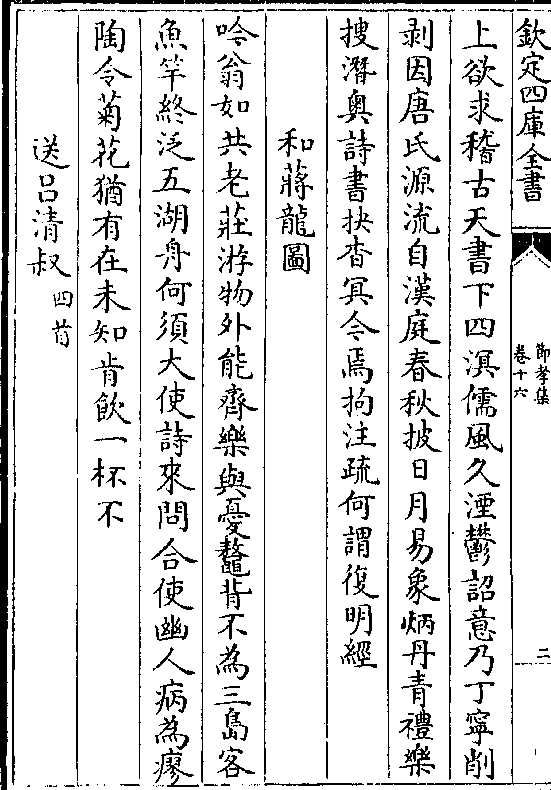 欽定四庫全書
節孝集
卷十六
二
上欲求稽古天書下四溟儒風久湮鬱詔意乃丁寧削
剥因唐氏源流自漢庭春秋披日月易象炳丹青禮樂
搜潛奥詩書抉杳冥今焉拘注疏何謂復明經
和蔣龍圖
吟翁如共老莊游物外能齊樂與憂鼇背不為三島客
魚竿終泛五湖舟何須大使詩來問合使幽人病為瘳
陶令菊花猶有在未知肯飲一杯不
送吕清叔四首